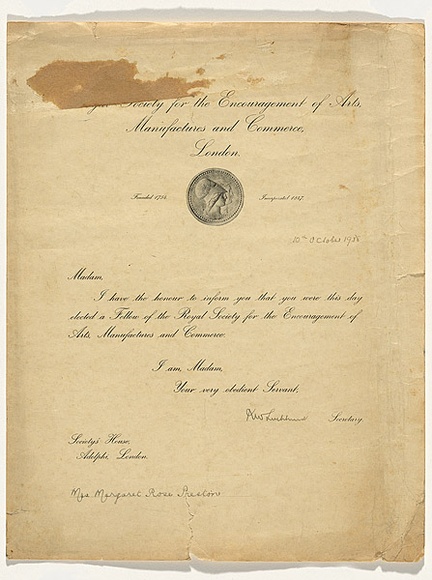 Society for the Encouragement of Arts,
Manufactures and Commerce,
London.
Founded 1754. Incorporated 1847.
October 193
Madam,
I have the honour to inform you that you were this day
elected a Fellow of the Royal Society for the Encouragement of
Arts, Manufactures and Commerce.
I am, Madam,
Your very obedient Servant,
Secretary.
Society's House,
Adelphi, London.
Mrs Margaret Rose Preston